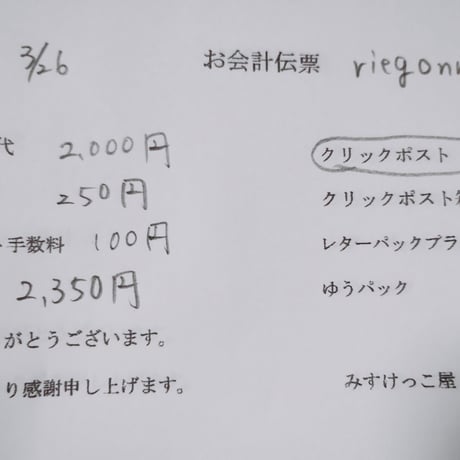 3/26 お会計伝票 riegon
代 2,000円 クリックポスト
250円 クリックポスト
ト手数料 100円 レターパックプラ
2,350円 ゆうパック
がとうございます。
り感謝申し上げます。 みすけっこ屋